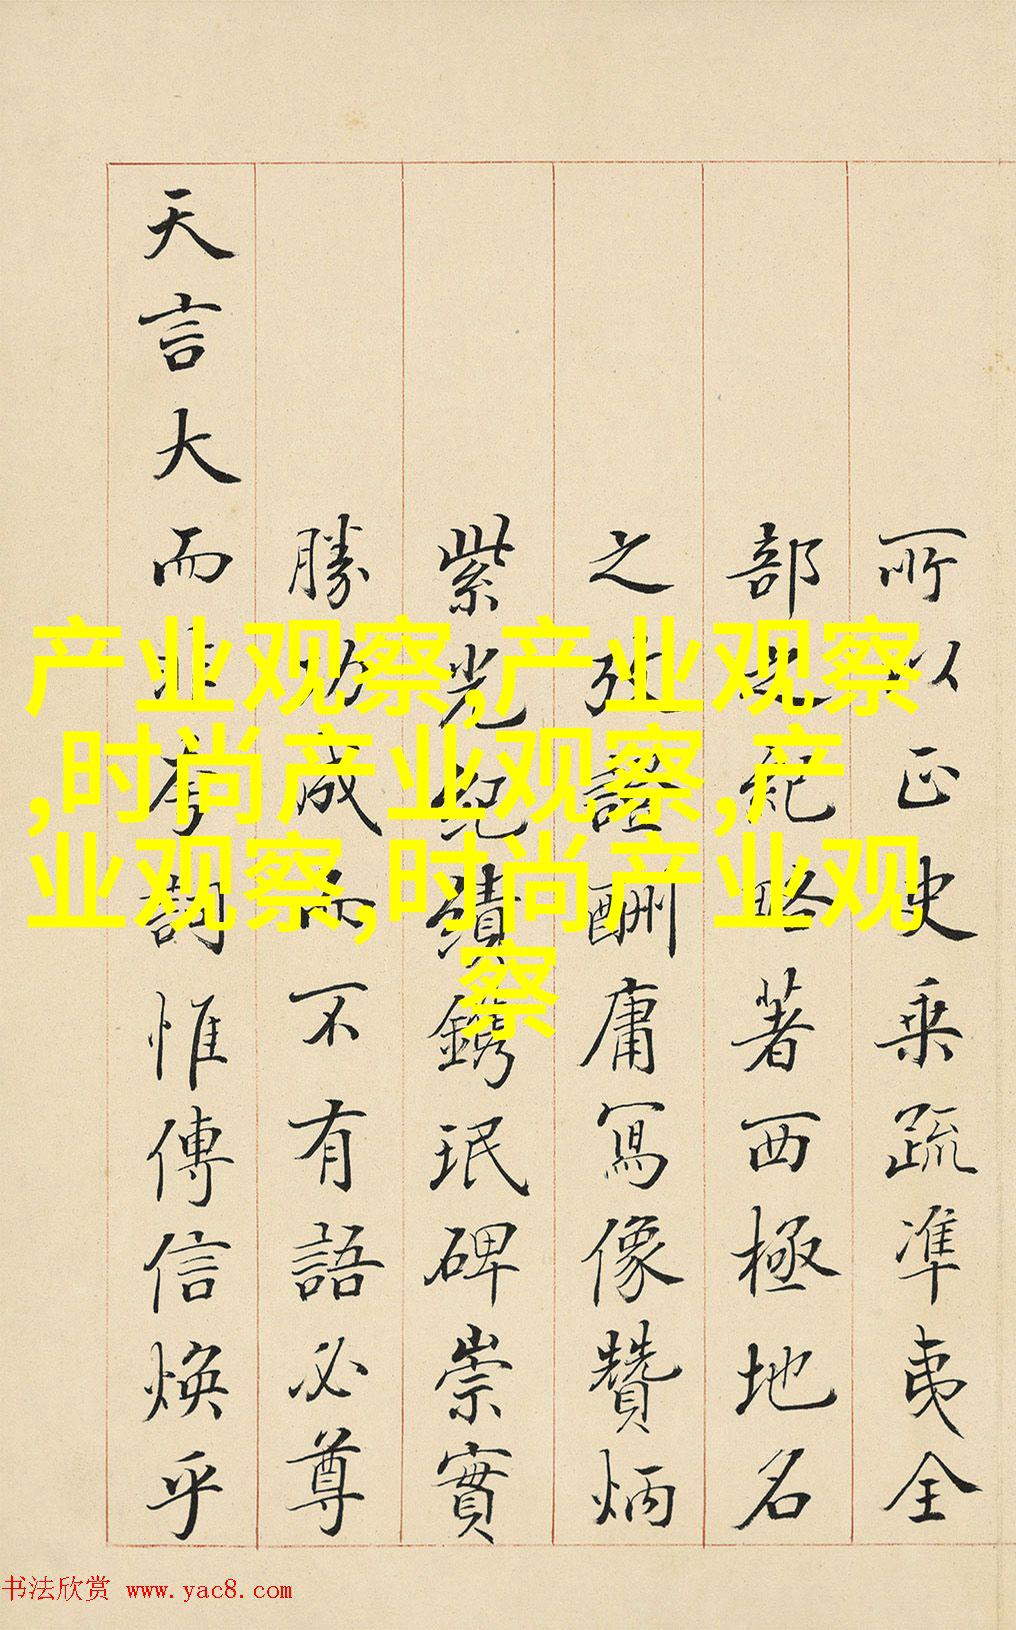 所以正史乘疏凖夷全
部紀略著西極地名
之證酬庸寫像贊炳
紫光紀績鐫珉碑崇實
勝功成而不有語必尊
天言大而非夸詞惟傳信煥乎
产业观察,产业观察
,时尚产业观察,产
业观察,时尚产业观
察
书法欣赏 www.yac8.com